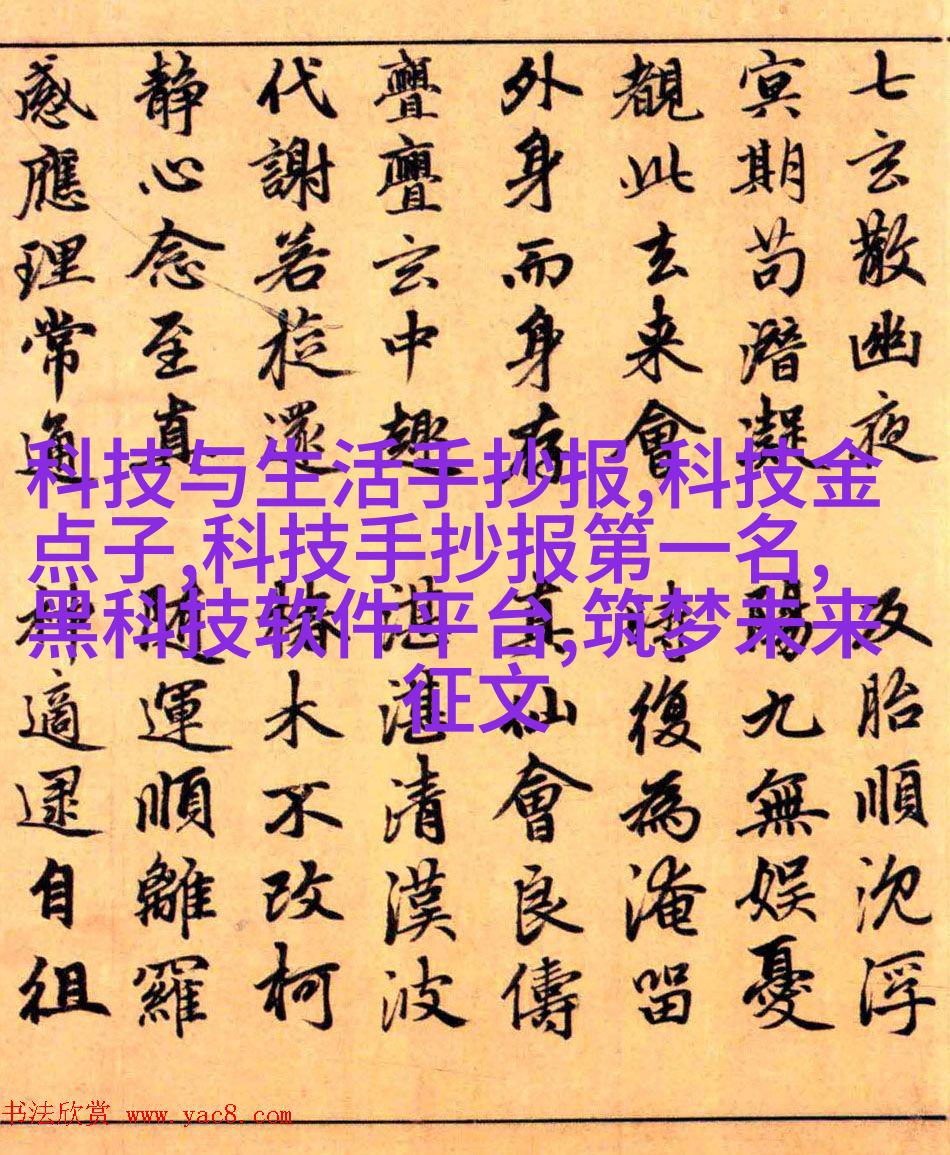 七玄散幽夜 反胎順沈浮
冥期苟潛凝 陽九無娛憂
覩此去来會 時復為淹留
外身而身存 真仙會良儔
亹亹玄中趣 湛湛清漢波
代謝若旋還 椿木不改柯
静心念至真 隨運順離羅
感應理常通 神適逮自徂
科技与生活手抄报,科技金
点子,科技手抄报第一名,
黑科技软件平台,筑梦未来
征文
书法欣赏 www.yac8.com